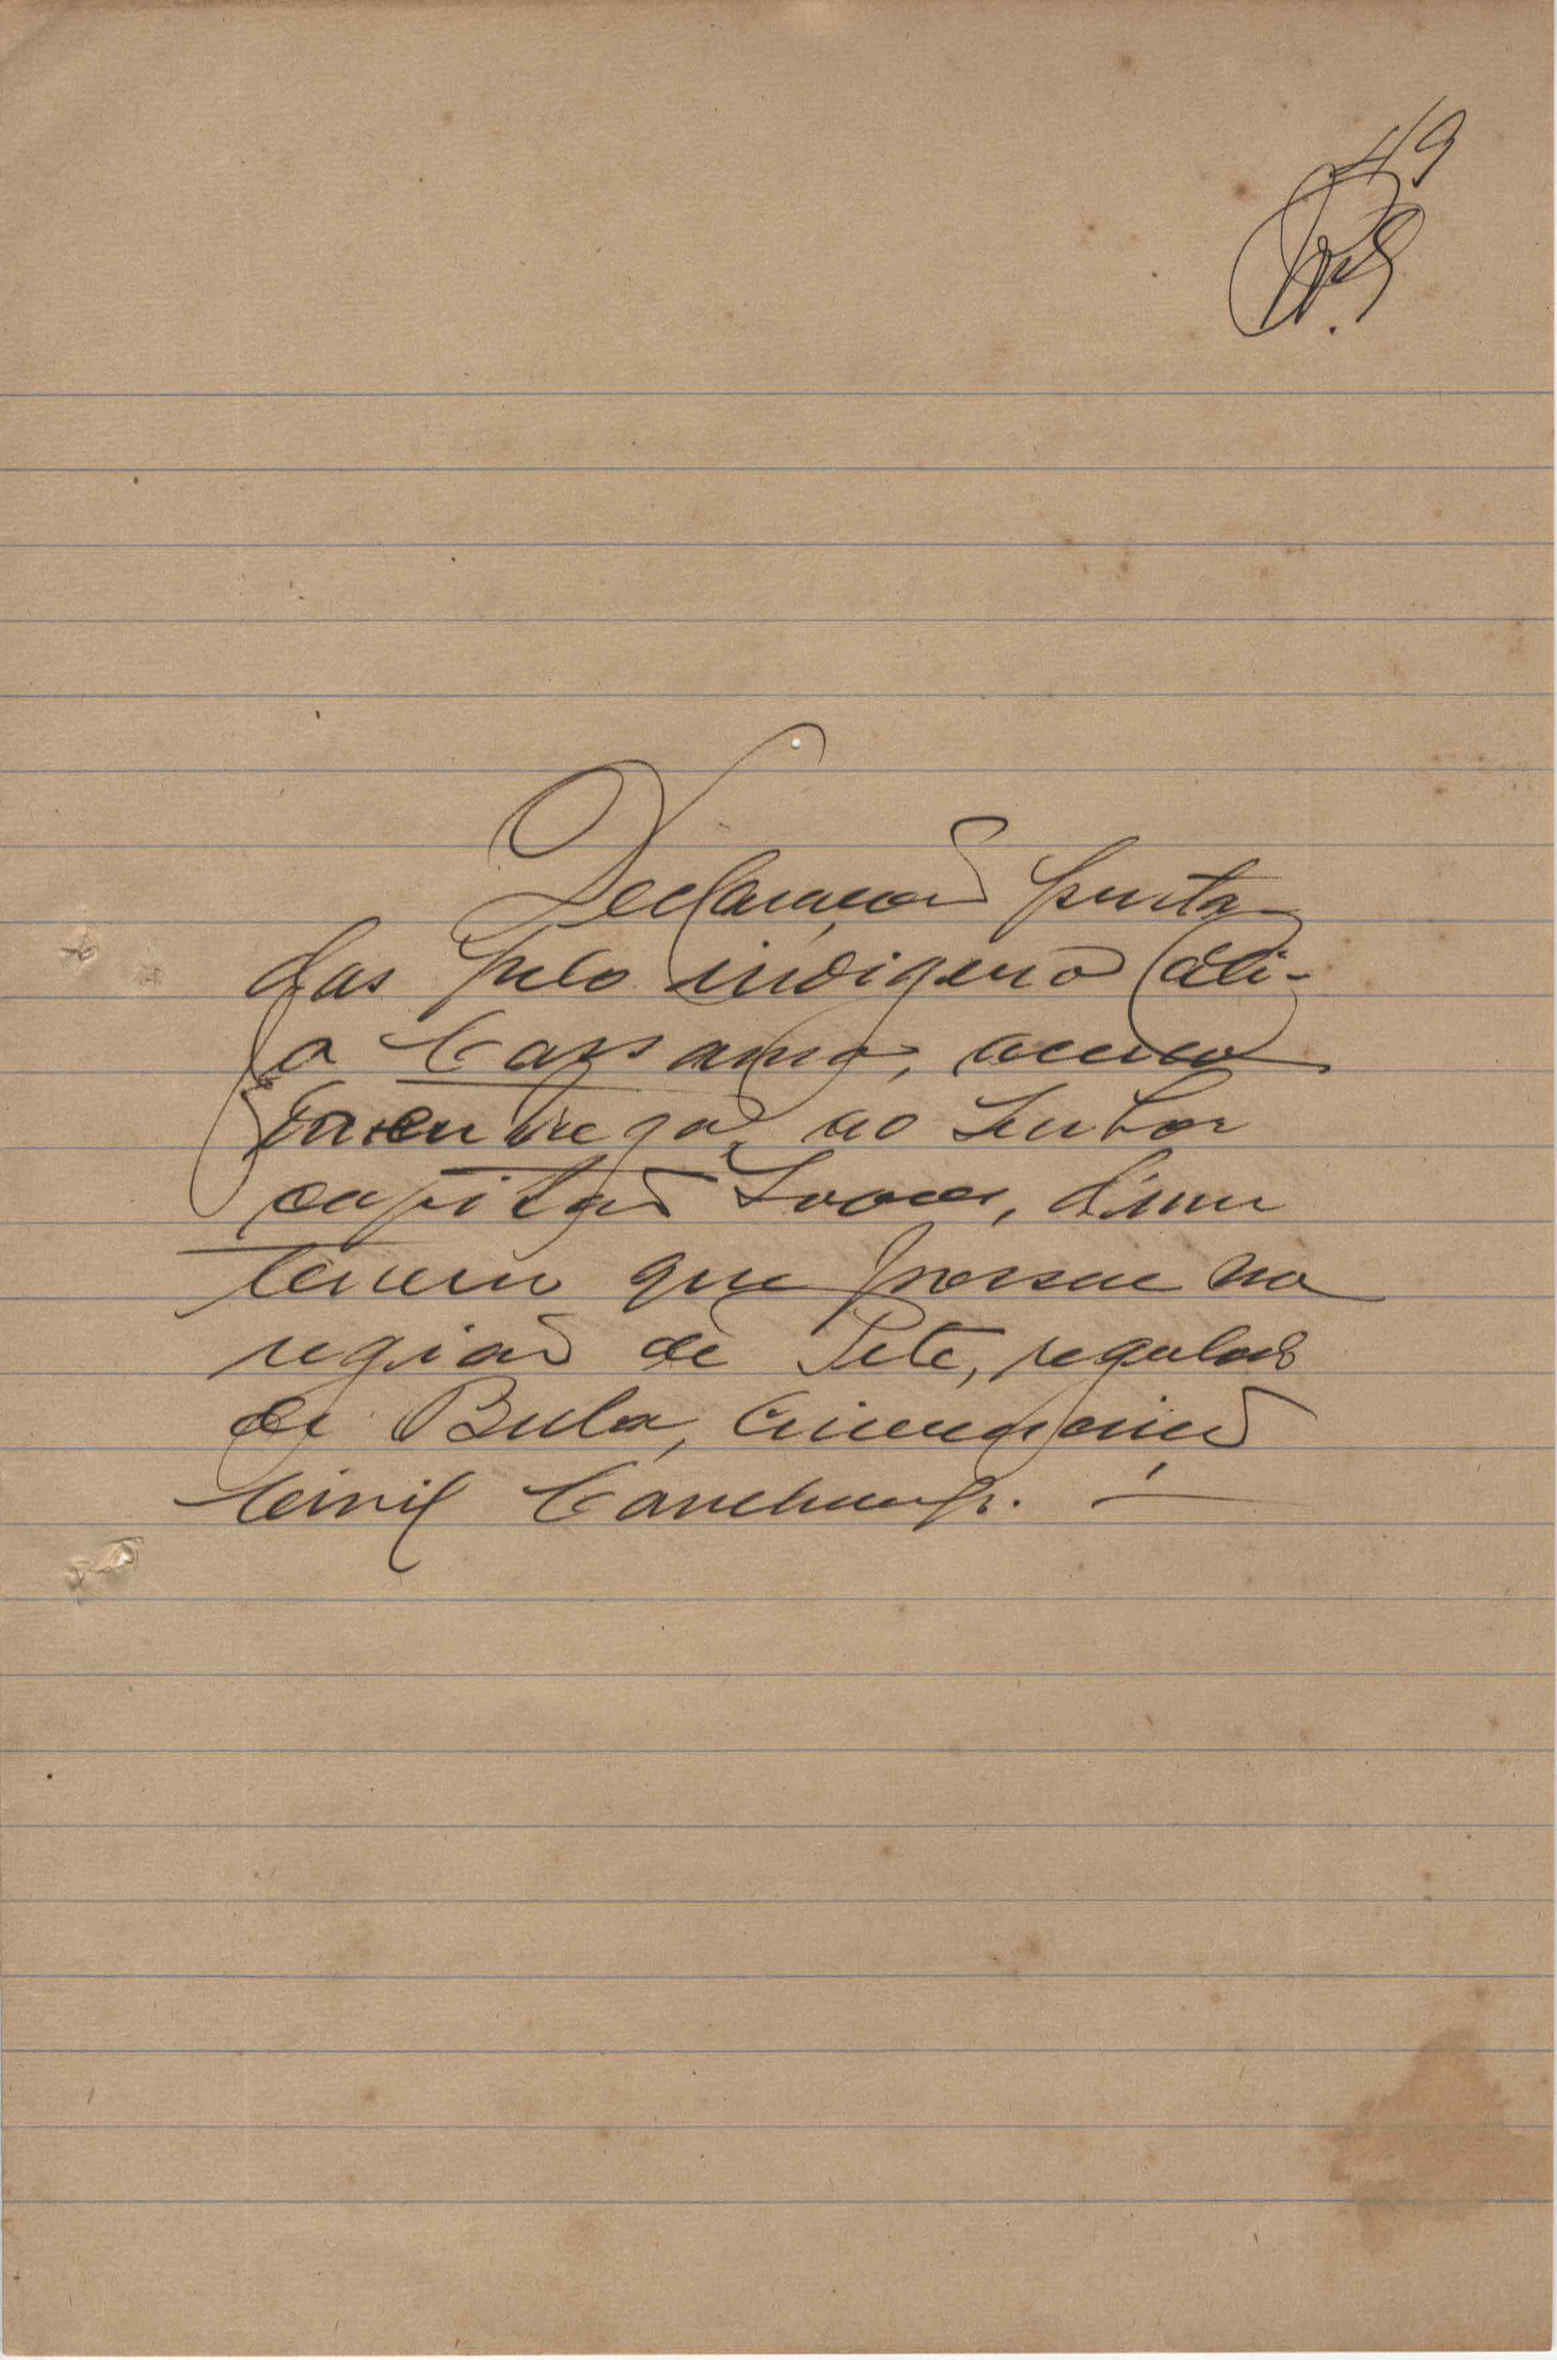 49
Declaração presta
das pelo indigena Ali-
o Cassamá, acerca
da entrega, ao Senhor
capitão d'um
terreno que possue na
região de Pete, regulado
de Bula, Circunscrição
Civil Canchungo.